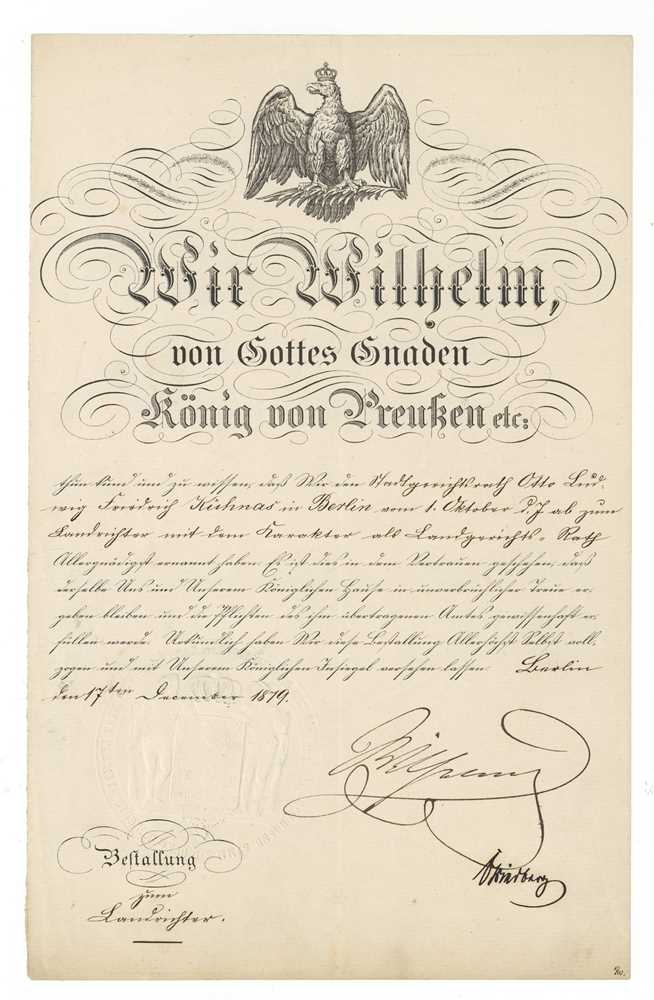 Wir Wilhelm,
von Gottes Gnaden
König von Preußen etc:
thun kund und zu wissen, daß Wir den Stadtgerichtsrath Otto Lud-
wig Friedrich Kuhnas in Berlin vom 1. Oktober d. J. ab zum
Landrichter mit dem Karakter als Landgerichts-Rath
Allergnädigst ernannt haben. Es ist dies in dem Vertrauen geschehen, daß
derselbe Uns und Unserem Königlichen Hause in unverbrüchlicher Treue er-
geben bleiben und die Pflichten des ihm übertragenen Amtes gewissenhaft er-
füllen werde. Urkundlich haben Wir diese Bestallung Allerhöchst Selbst voll-
zogen und mit Unserem Königlichen Insiegel versehen lassen. Berlin
den 17ten December 1879.
Wilhelm
Friedberg
Bestallung
zum
Landrichter.